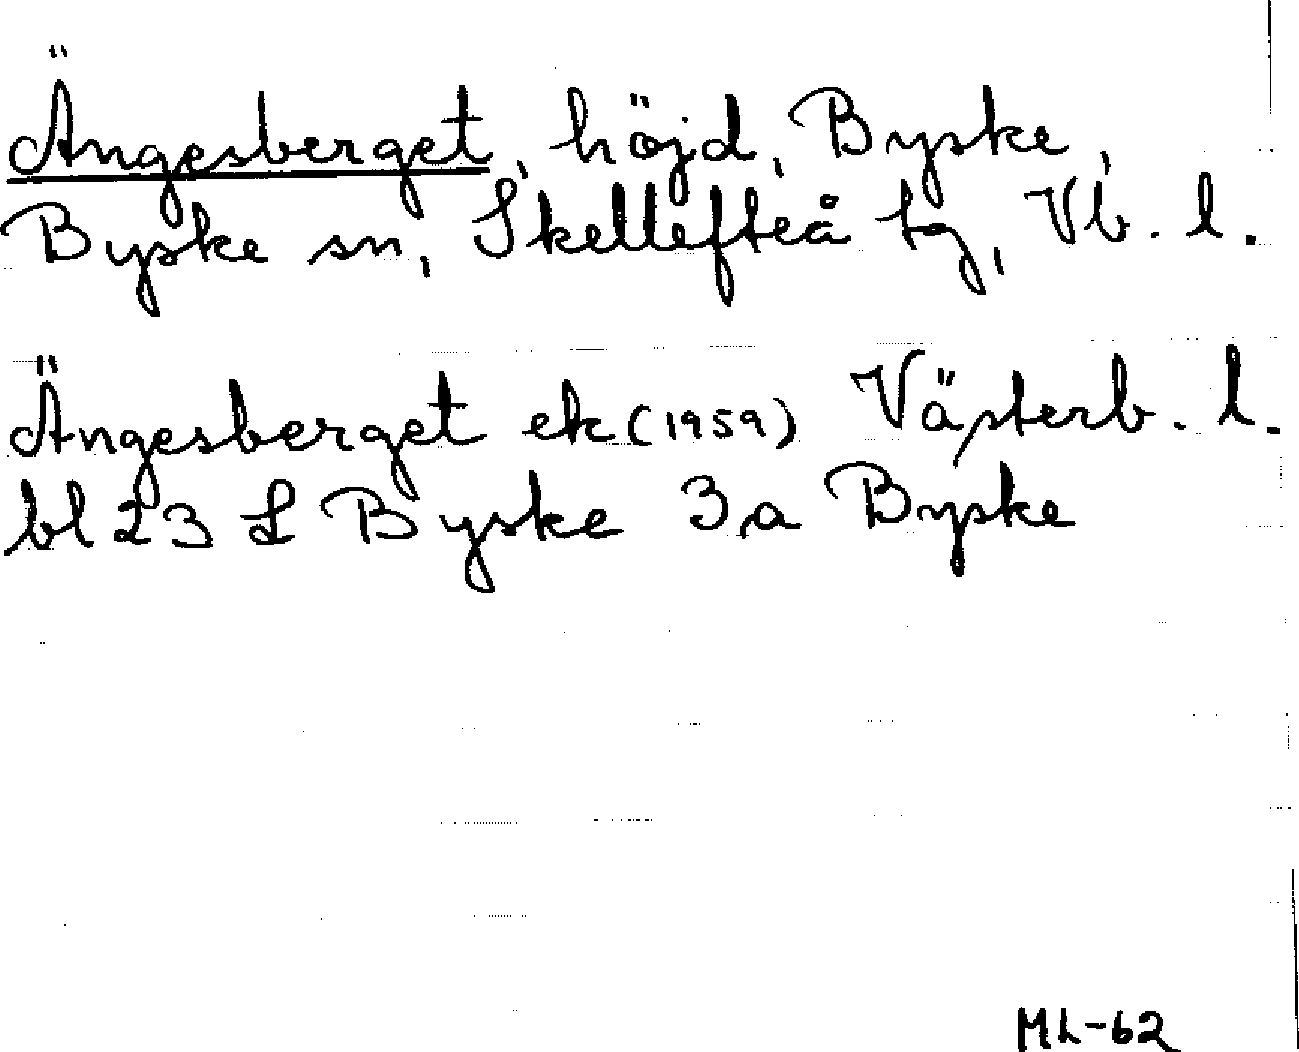 Ängesberget, höjd, Byske,
Byske sn, Skellefteå tg, Vb. l.
Ängesberget ek (1959) Västerb. l.
bl 23 L Byske 3a Byske
ML-62